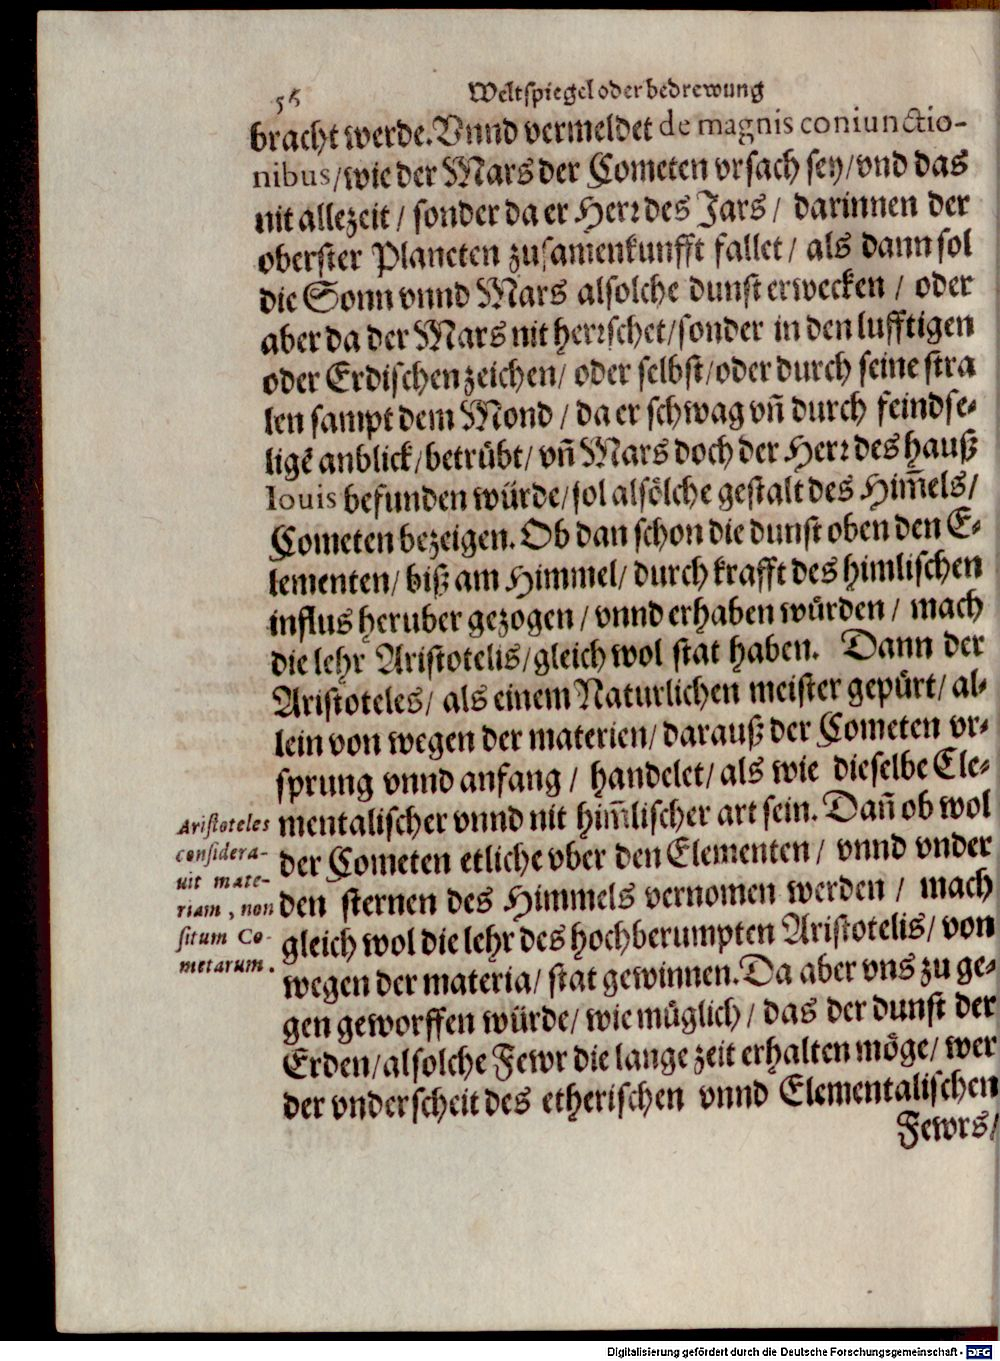 56 Weltspiegel oder bedrewung
bracht werde. Vnnd vermeldet de magnis coniunctio-
nibus/wie der Mars der Cometen vrsach sey/vnd das
nit allezeit / sonder da er Herr des Jars / darinnen der
oberster Planeten zusamenkunfft fallet / als dann sol
die Sonn vnnd Mars alsolche dunst erwecken / oder
aber da der Mars nit herrschet/sonder in den lufftigen
oder Erdischen zeichen/ oder selbst/oder durch seine stra
len sampt dem Mond / da er schwag vñ durch feindse-
ligẽ anblick/betrübt/ vñ Mars doch der Herr des hauß
Iouis befunden würde/sol alsölche gestalt des Him̃els/
Cometen bezeigen. Ob dan schon die dunst oben den E-
lementen/ biß am Himmel/ durch krafft des himlischen
influs heruber gezogen / vnnd erhaben würden / mach
die lehr Aristotelis/gleich wol stat haben. Dann der
Aristoteles/ als einem Naturlichen meister gepürt/ al-
lein von wegen der materien/ darauß der Cometen vr-
sprung vnnd anfang / handelet/ als wie dieselbe Ele-
mentalischer vnnd nit him̃lischer art sein. Dañ ob wol
der Cometen etliche vber den Elementen / vnnd vnder
den sternen des Himmels vernomen werden / mach
gleich wol die lehr des hochberumpten Aristotelis/ von
wegen der materia/ stat gewinnen. Da aber vns zu ge-
gen geworffen würde/ wie müglich/ das der dunst der
Erden/alsolche Fewr die lange zeit erhalten möge/ wer
der vnderscheit des etherischen vnnd Elementalischen
Fewrs/
Aristoteles
considera-
uit mate-
riam, non
situm Co-
metarum.
Digitalisierung gefördert durch die Deutsche Forschungsgemeinschaft - DFG